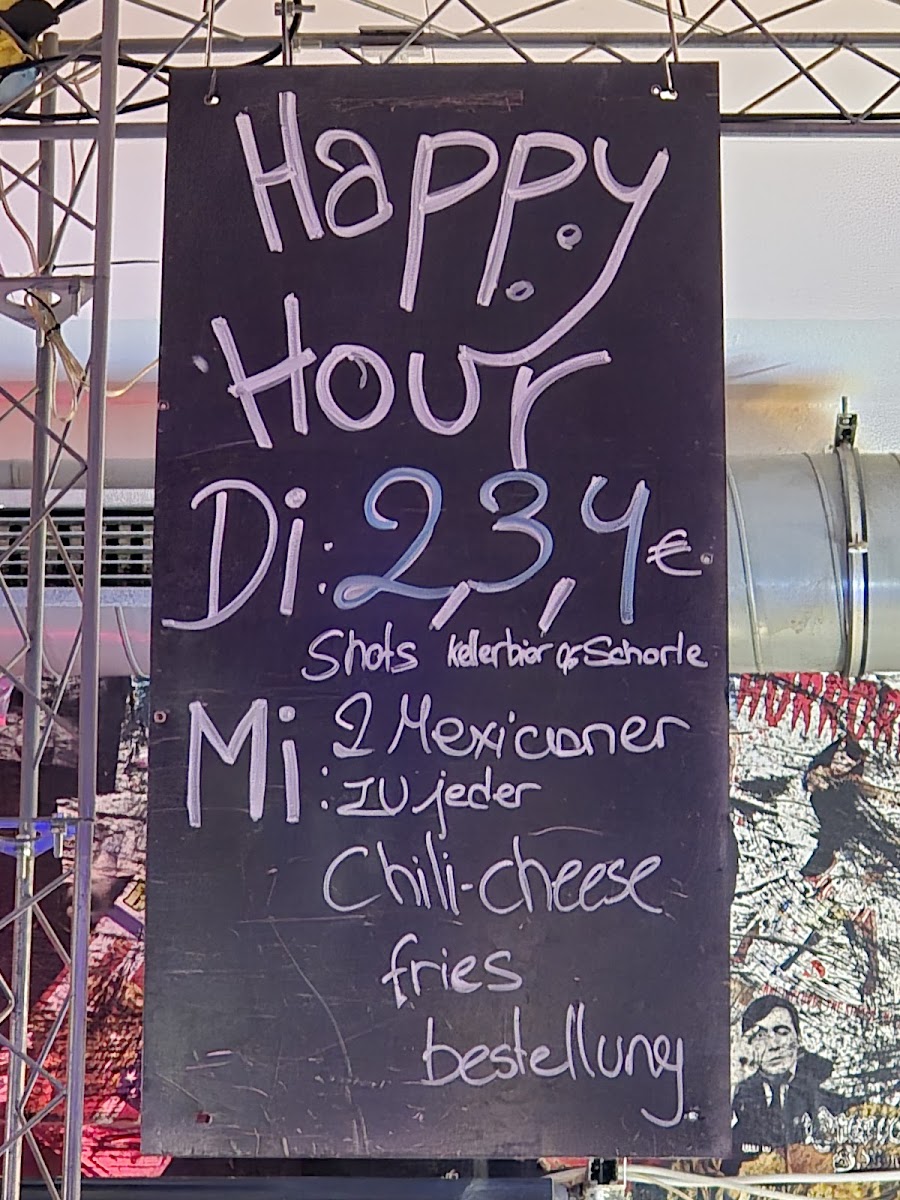 Happy
Hour
Di: 2,3,4€
Shots Kellerbier 03 Schorle
Mi: 2 Mexicaner
zu jeder
Chili-cheese
fries
bestellung
HORROR